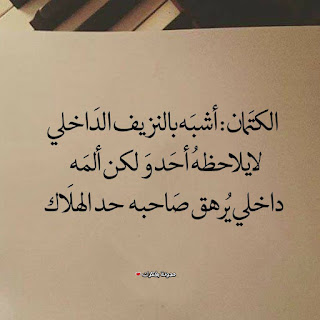 الكتَمان: أشبَه بالنزيف الدَاخلي
لايلاحظهُ أحَد وَ لكن ألمَه
داخلي يُرهق صَاحبه حد الهلَاك